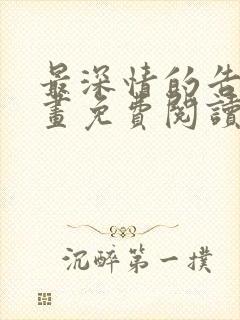 最深情的告
畫免費閱讀
沉醉第一撲